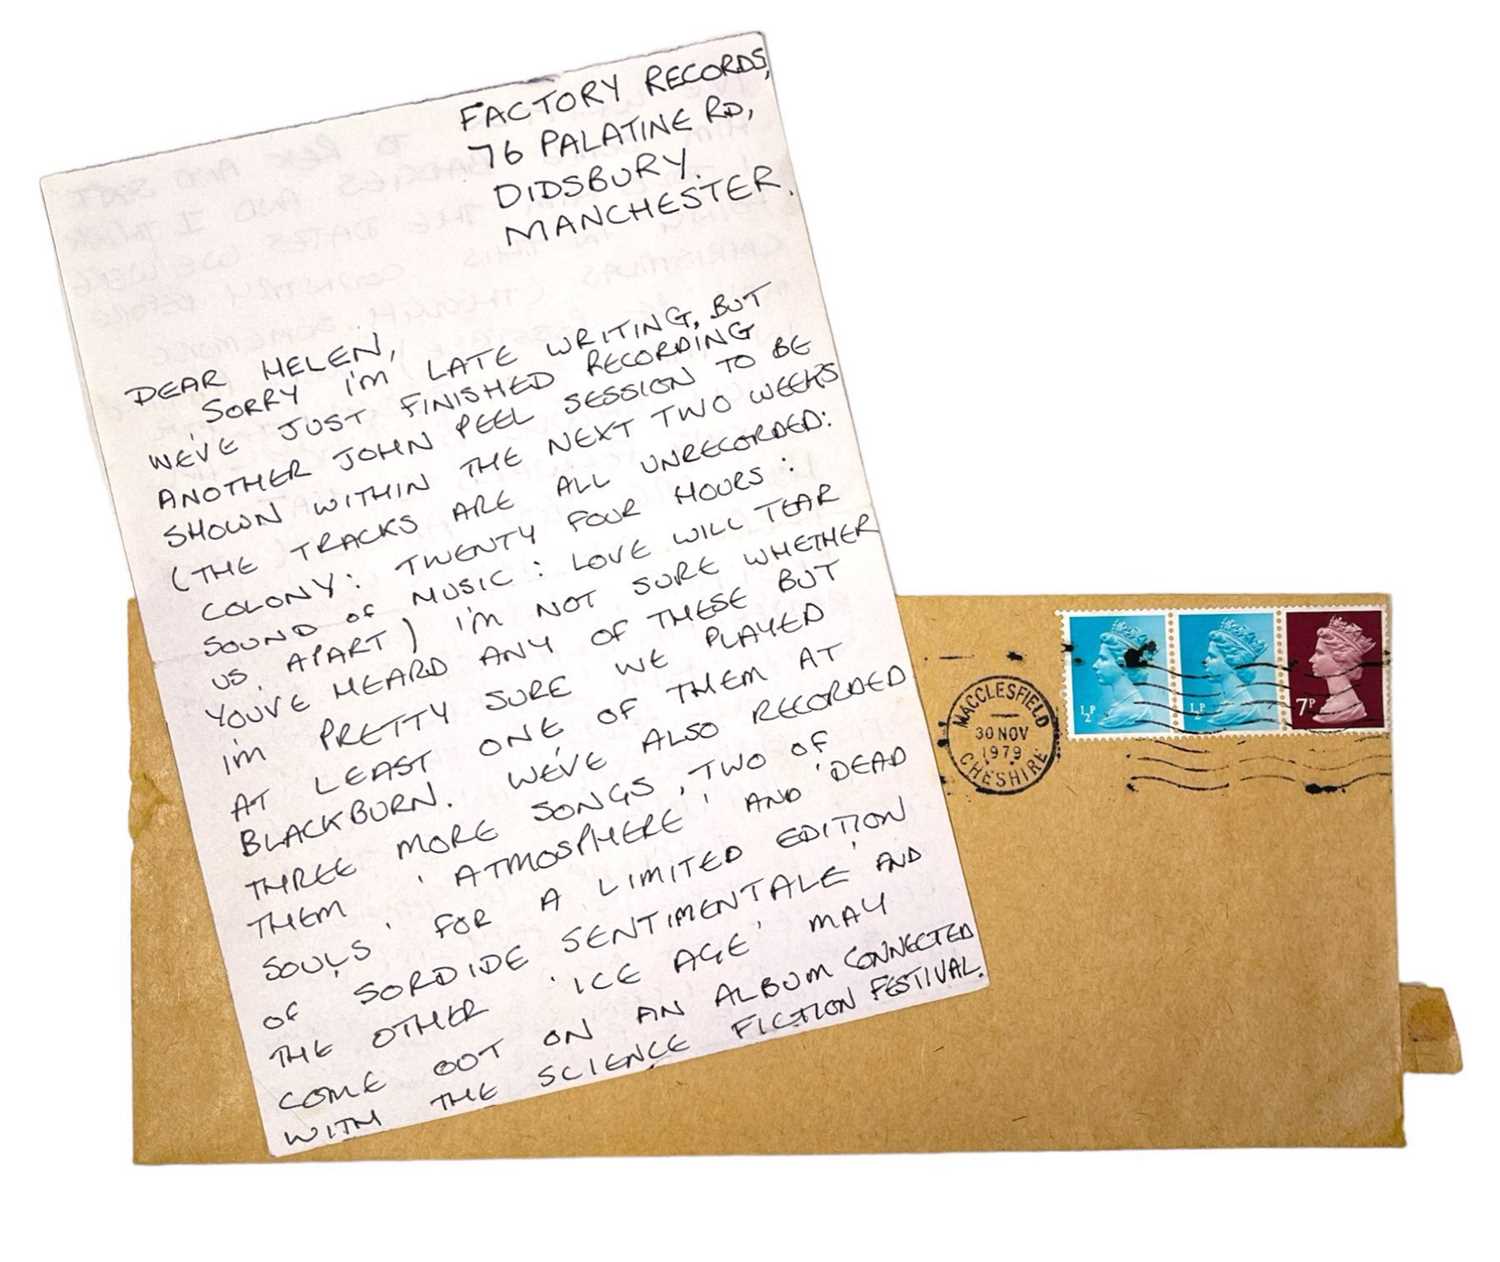 FACTORY RECORDS,
76 PALATINE RD,
DIDSBURY.
MANCHESTER.
DEAR HELEN,
SORRY I'M LATE WRITING, BUT
WE'VE JUST FINISHED RECORDING
ANOTHER JOHN PEEL SESSION TO BE
SHOWN WITHIN THE NEXT TWO WEEKS
(THE TRACKS ARE ALL UNRECORDED:
COLONY: TWENTY FOUR HOURS:
SOUND OF MUSIC: LOVE WILL TEAR
US APART) I'M NOT SURE WHETHER
YOU'VE HEARD ANY OF THESE BUT
I'M PRETTY SURE WE PLAYED
AT LEAST ONE OF THEM AT
BLACKBURN. WE'VE ALSO RECORDED
THREE MORE SONGS, TWO OF
THEM 'ATMOSPHERE' AND 'DEAD
SOULS' FOR A LIMITED EDITION
OF SORDIDE SENTIMENTALE' AND
THE OTHER 'ICE AGE' MAY
COME OUT ON AN ALBUM CONNECTED
WITH THE SCIENCE FICTION FESTIVAL.
½P ½P 7P
MACCLESFIELD
30 NOV
1979
CHESHIRE